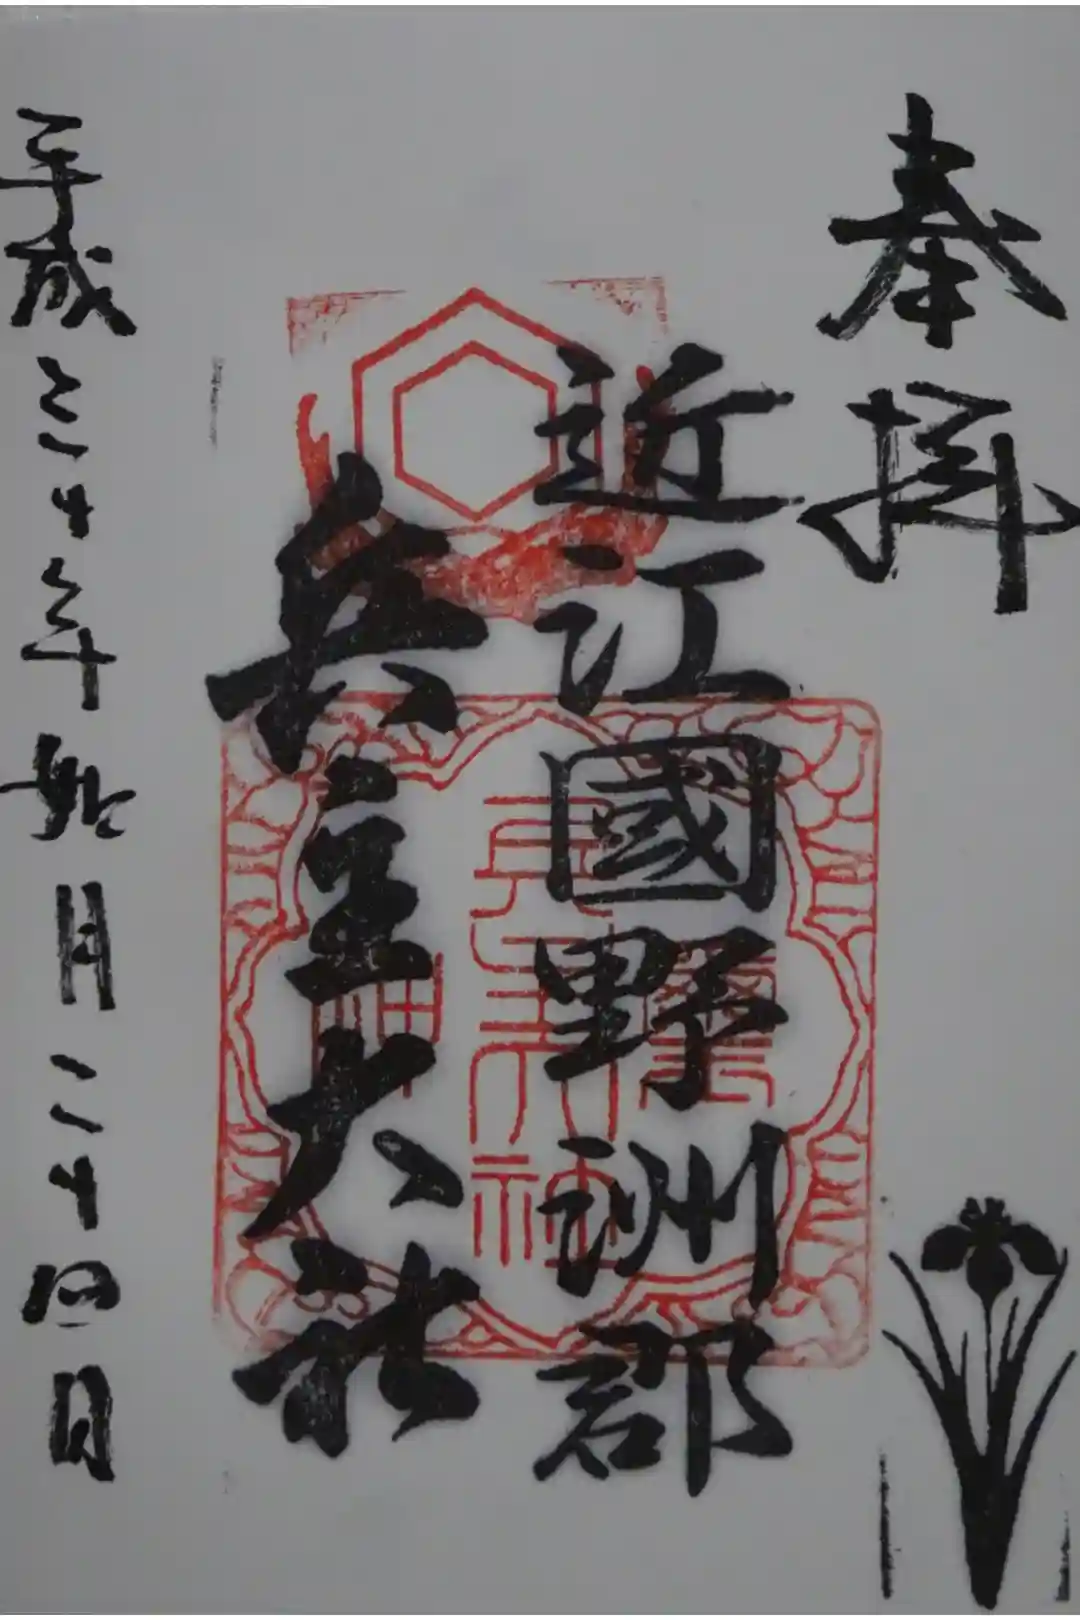 奉拝
近江國野洲郡
兵主大社
平成三十年如月二十四日